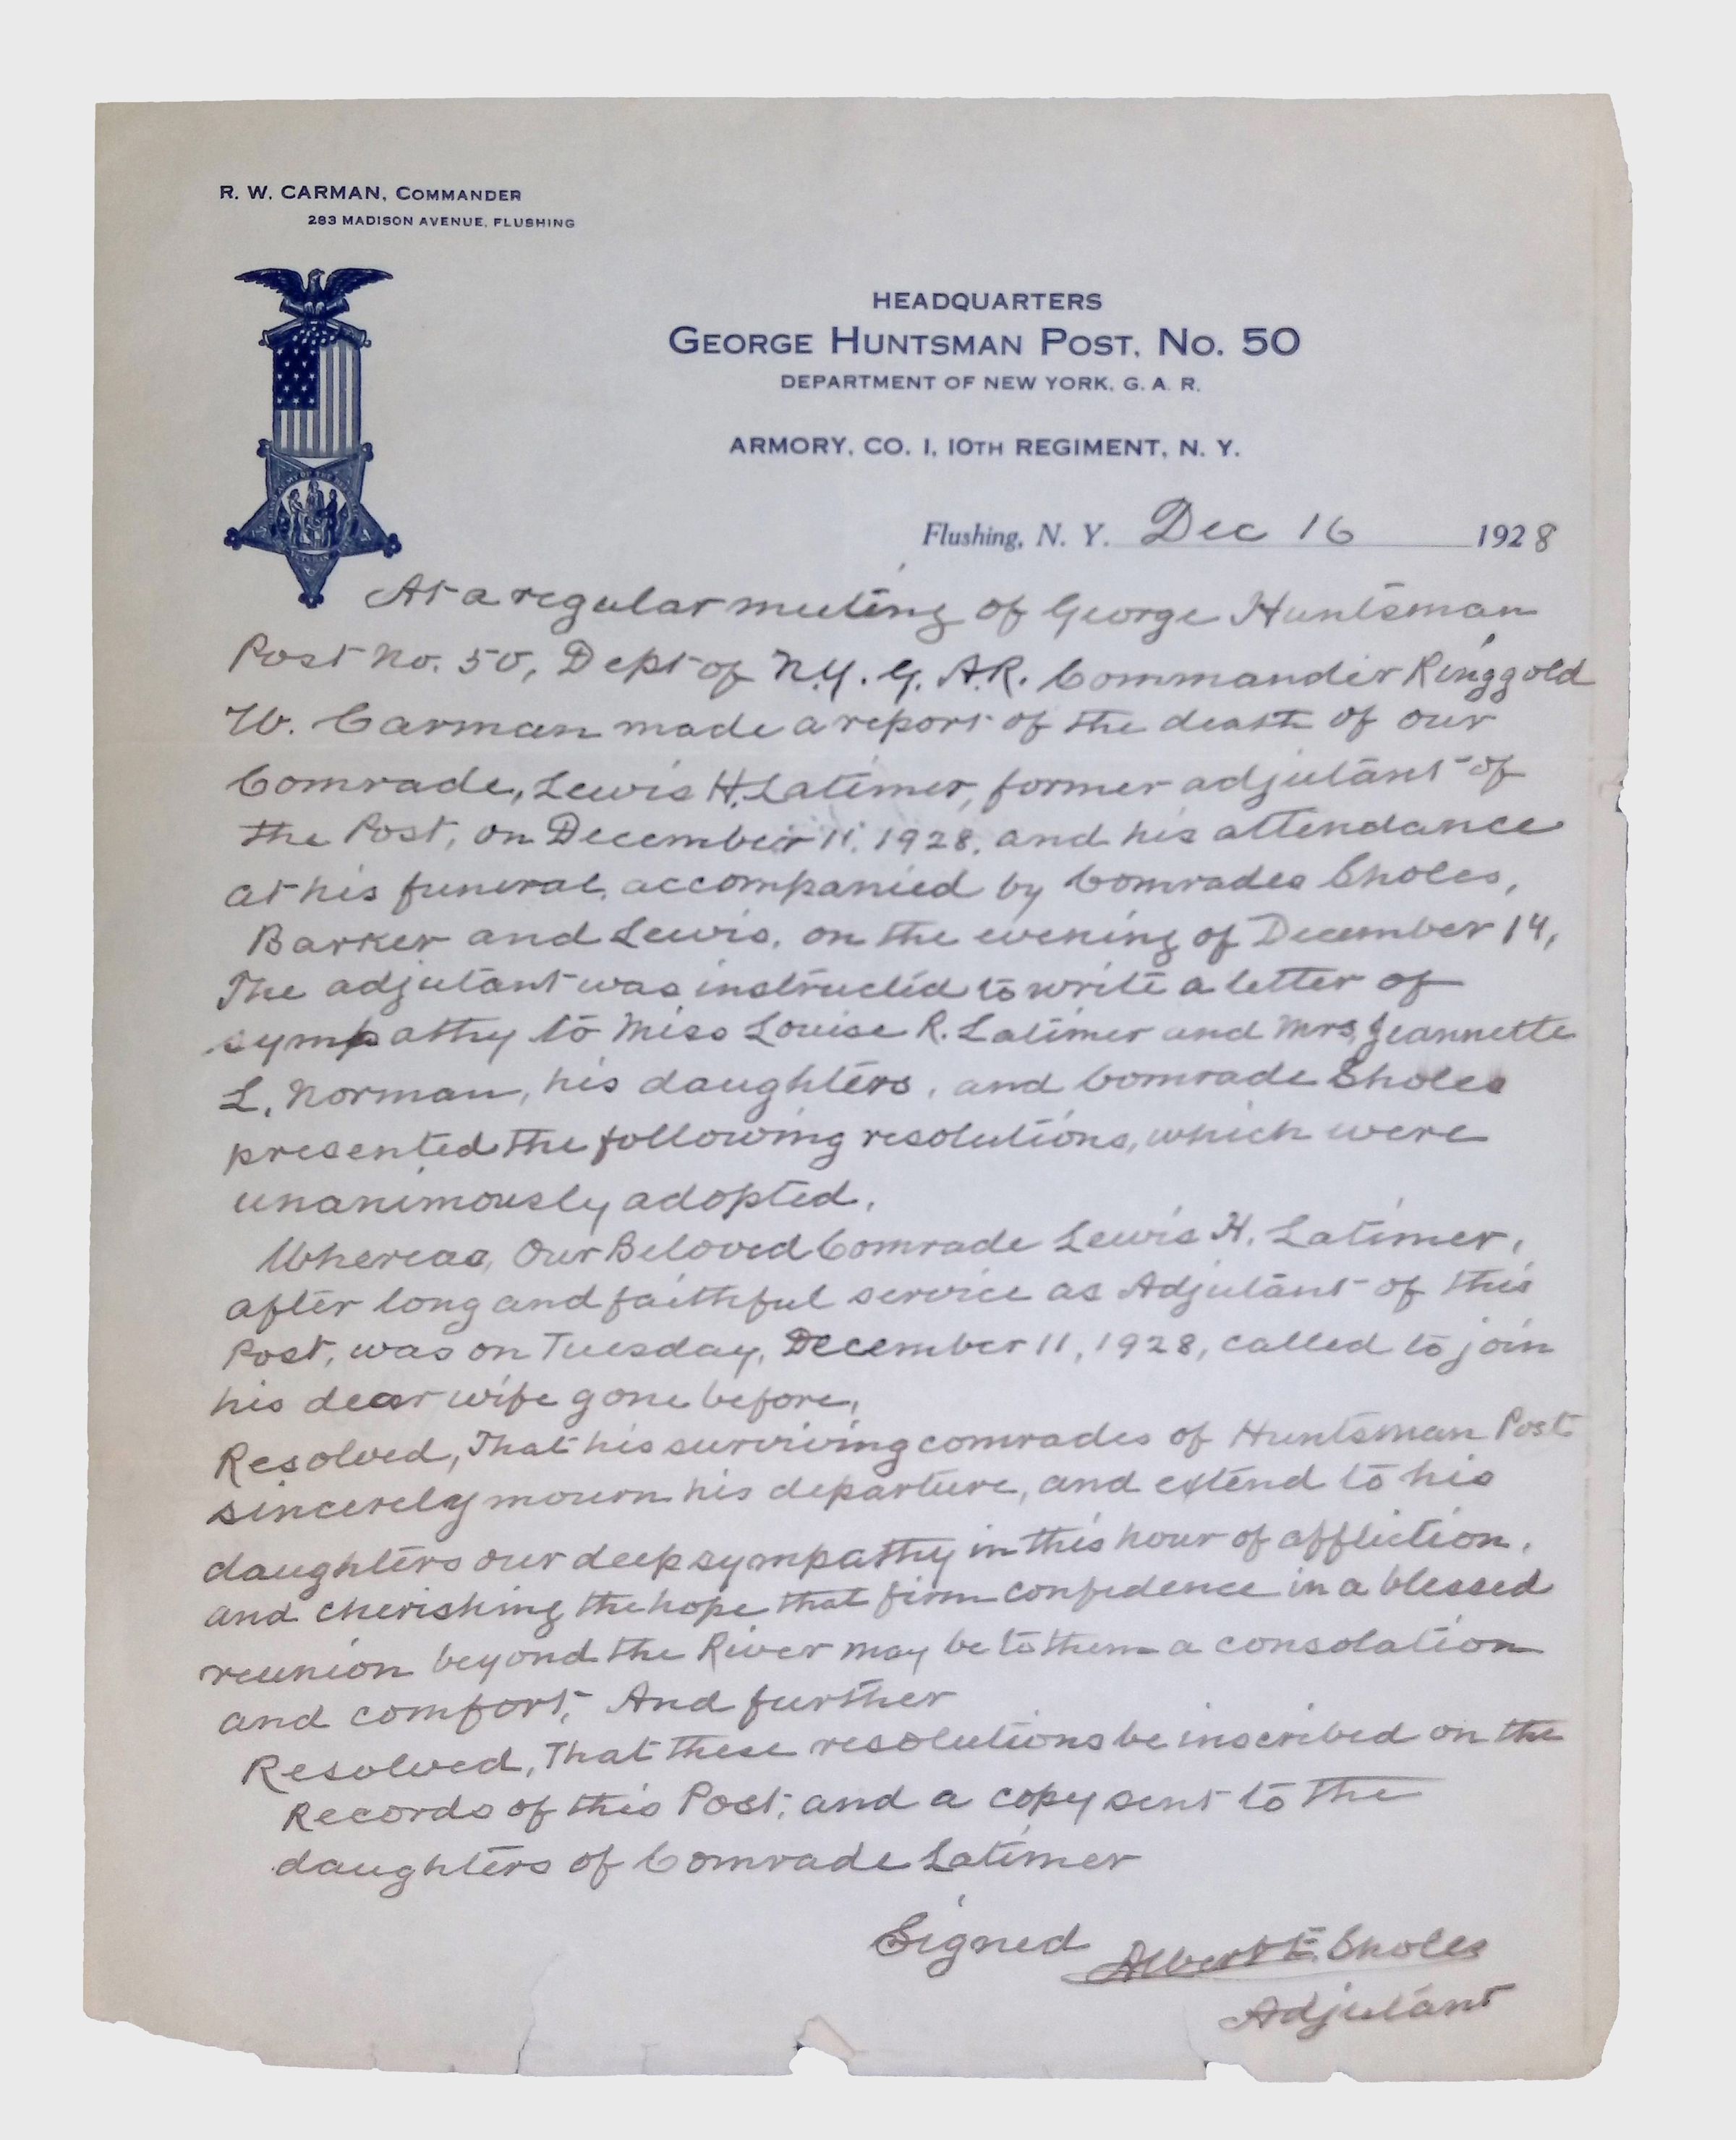 R. W. CARMAN, COMMANDER
283 MADISON AVENUE, FLUSHING
HEADQUARTERS
GEORGE HUNTSMAN POST, NO. 50
DEPARTMENT OF NEW YORK, G. A. R.
ARMORY, CO. I, 10TH REGIMENT, N. Y.
Flushing, N. Y. Dec 16 1928
At a regular meeting of George Huntsman
Post No. 50, Dept of N.Y. G. A.R. Commander Ringgold
W. Carman made a report of the death of our
Comrade, Lewis H. Latimer, former adjutant of
the Post, on December 11, 1928, and his attendance
at his funeral, accompanied by Comrades Sholes,
Barker and Lewis, on the evening of December 14,
The adjutant was instructed to write a letter of
sympathy to Miss Louise R. Latimer and Mrs. Jeannette
L. Norman, his daughters, and Comrade Sholes
presented the following resolutions, which were
unanimously adopted.
Whereas, Our Beloved Comrade Lewis H. Latimer,
after long and faithful service as Adjutant of this
Post, was on Tuesday, December 11, 1928, called to join
his dear wife gone before,
Resolved, That his surviving comrades of Huntsman Post
sincerely mourn his departure, and extend to his
daughters our deep sympathy in this hour of affliction,
and cherishing the hope that firm confidence in a blessed
reunion beyond the River may be to them a consolation
and comfort; And further
Resolved, That these resolutions be inscribed on the
Records of this Post; and a copy sent to the
daughters of Comrade Latimer
Signed Albert E. Sholes
Adjutant